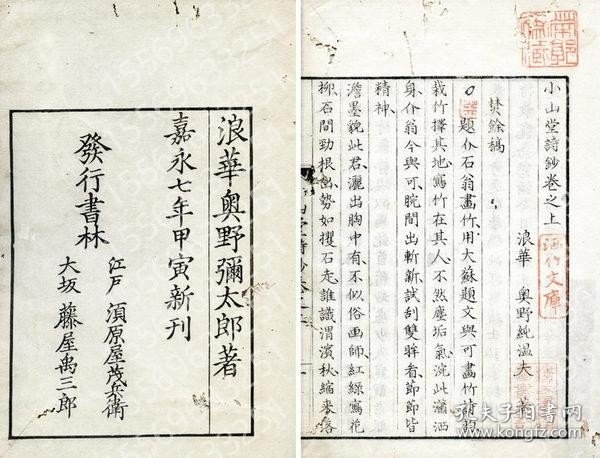 小山堂詩鈔卷之上
浪華 奧野純温夫 著
焚餘稿
題介石翁畫竹用大蘇題文與可畫竹詩韵
栽竹擇其地寫竹在其人不然塵垢氣浣此瀟洒
身介翁今與可腕間出斬新試刮雙眸看節節皆
精神
澹墨貌此君灑出胸中有不似俗画師紅綠寫花
柳石間勁根出勢如攫石走誰識渭濱秋縮來落
浪華奧野彌太郎著
嘉永七年甲寅新刊
發行書林
江戸 須原屋茂兵衛
大坂 藤屋禹三郎
酒竹文庫
孔夫子旧书网
www.kongfz.com